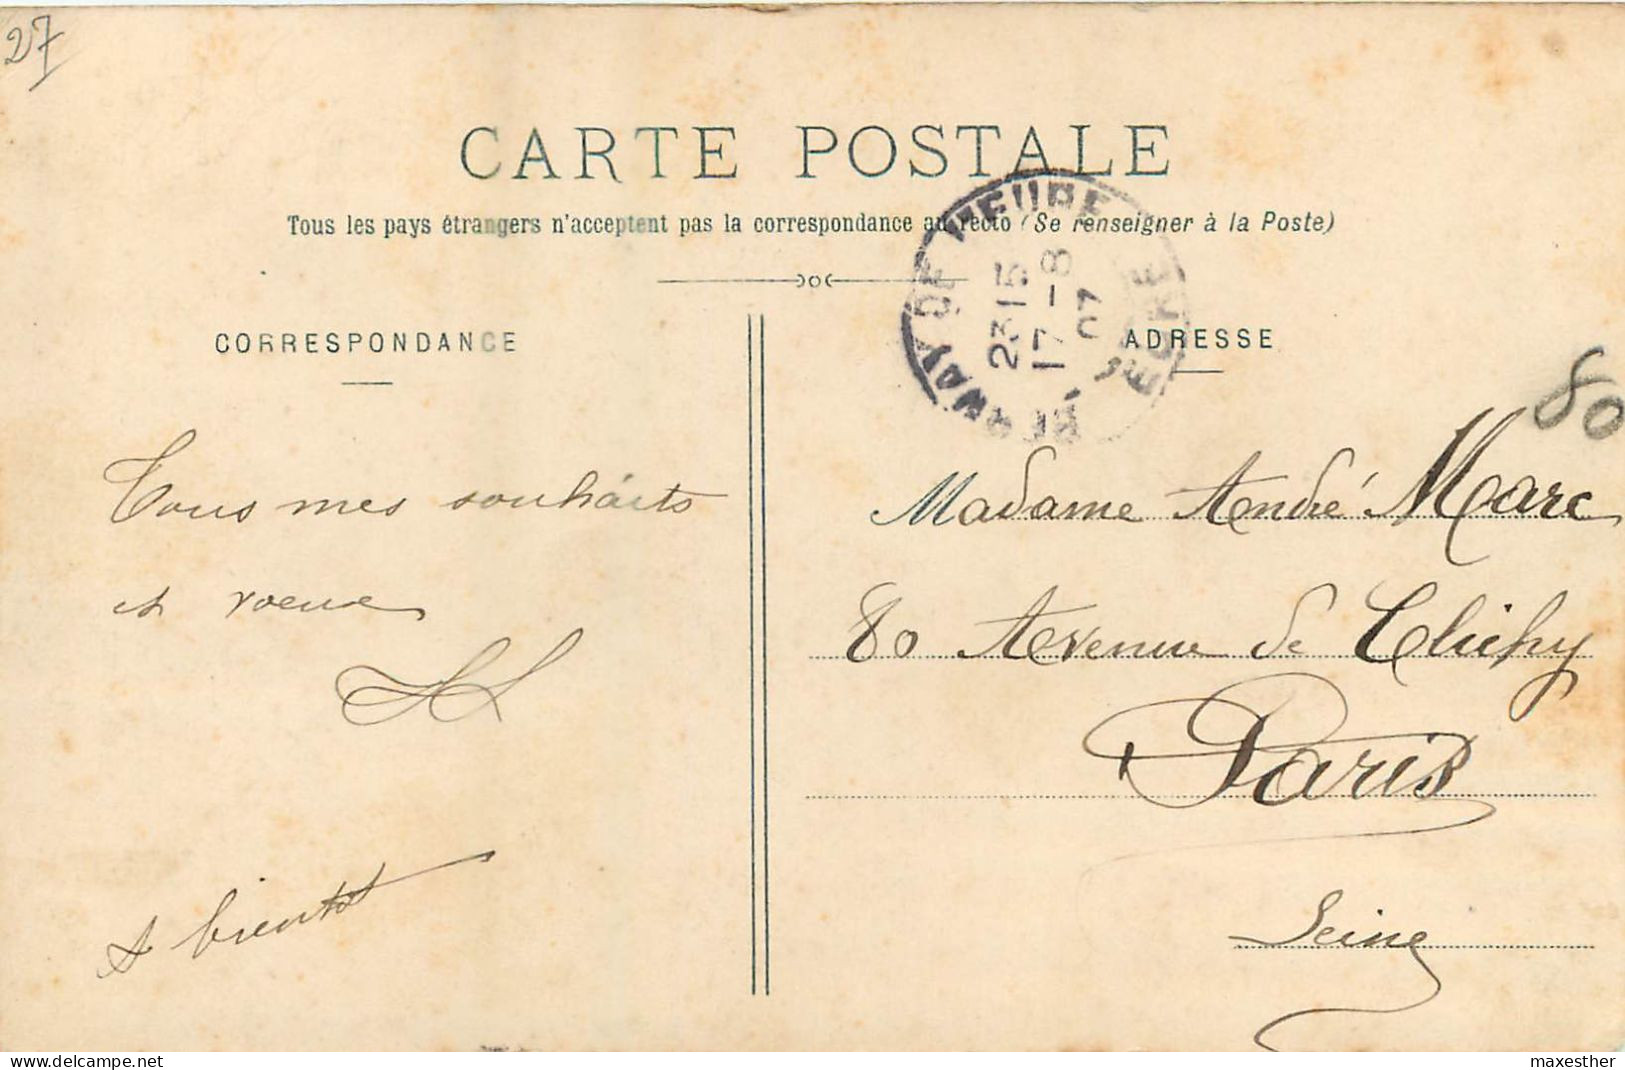 27
CARTE POSTALE
Tous les pays étrangers n'acceptent pas la correspondance au recto (Se renseigner à la Poste)
CORRESPONDANCE
Tous mes souhaits
et voeux
A bientôt
23 15
17 - 8
07
ADRESSE
80
Madame André Marc
80 Avenue de Clichy
Paris
Seine
www.delcampe.net
maxesther